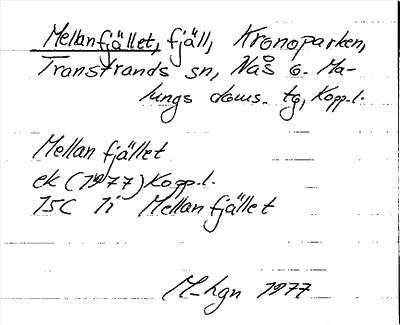 Mellanfjället, fjäll, Kronoparken,
Transtrands sn, Nås o. Ma-
lungs doms. tg, Kopp.l.
Mellanfjället
ek (1977) Kopp.l.
15C 1i Mellanfjället
M-Lgn 1977